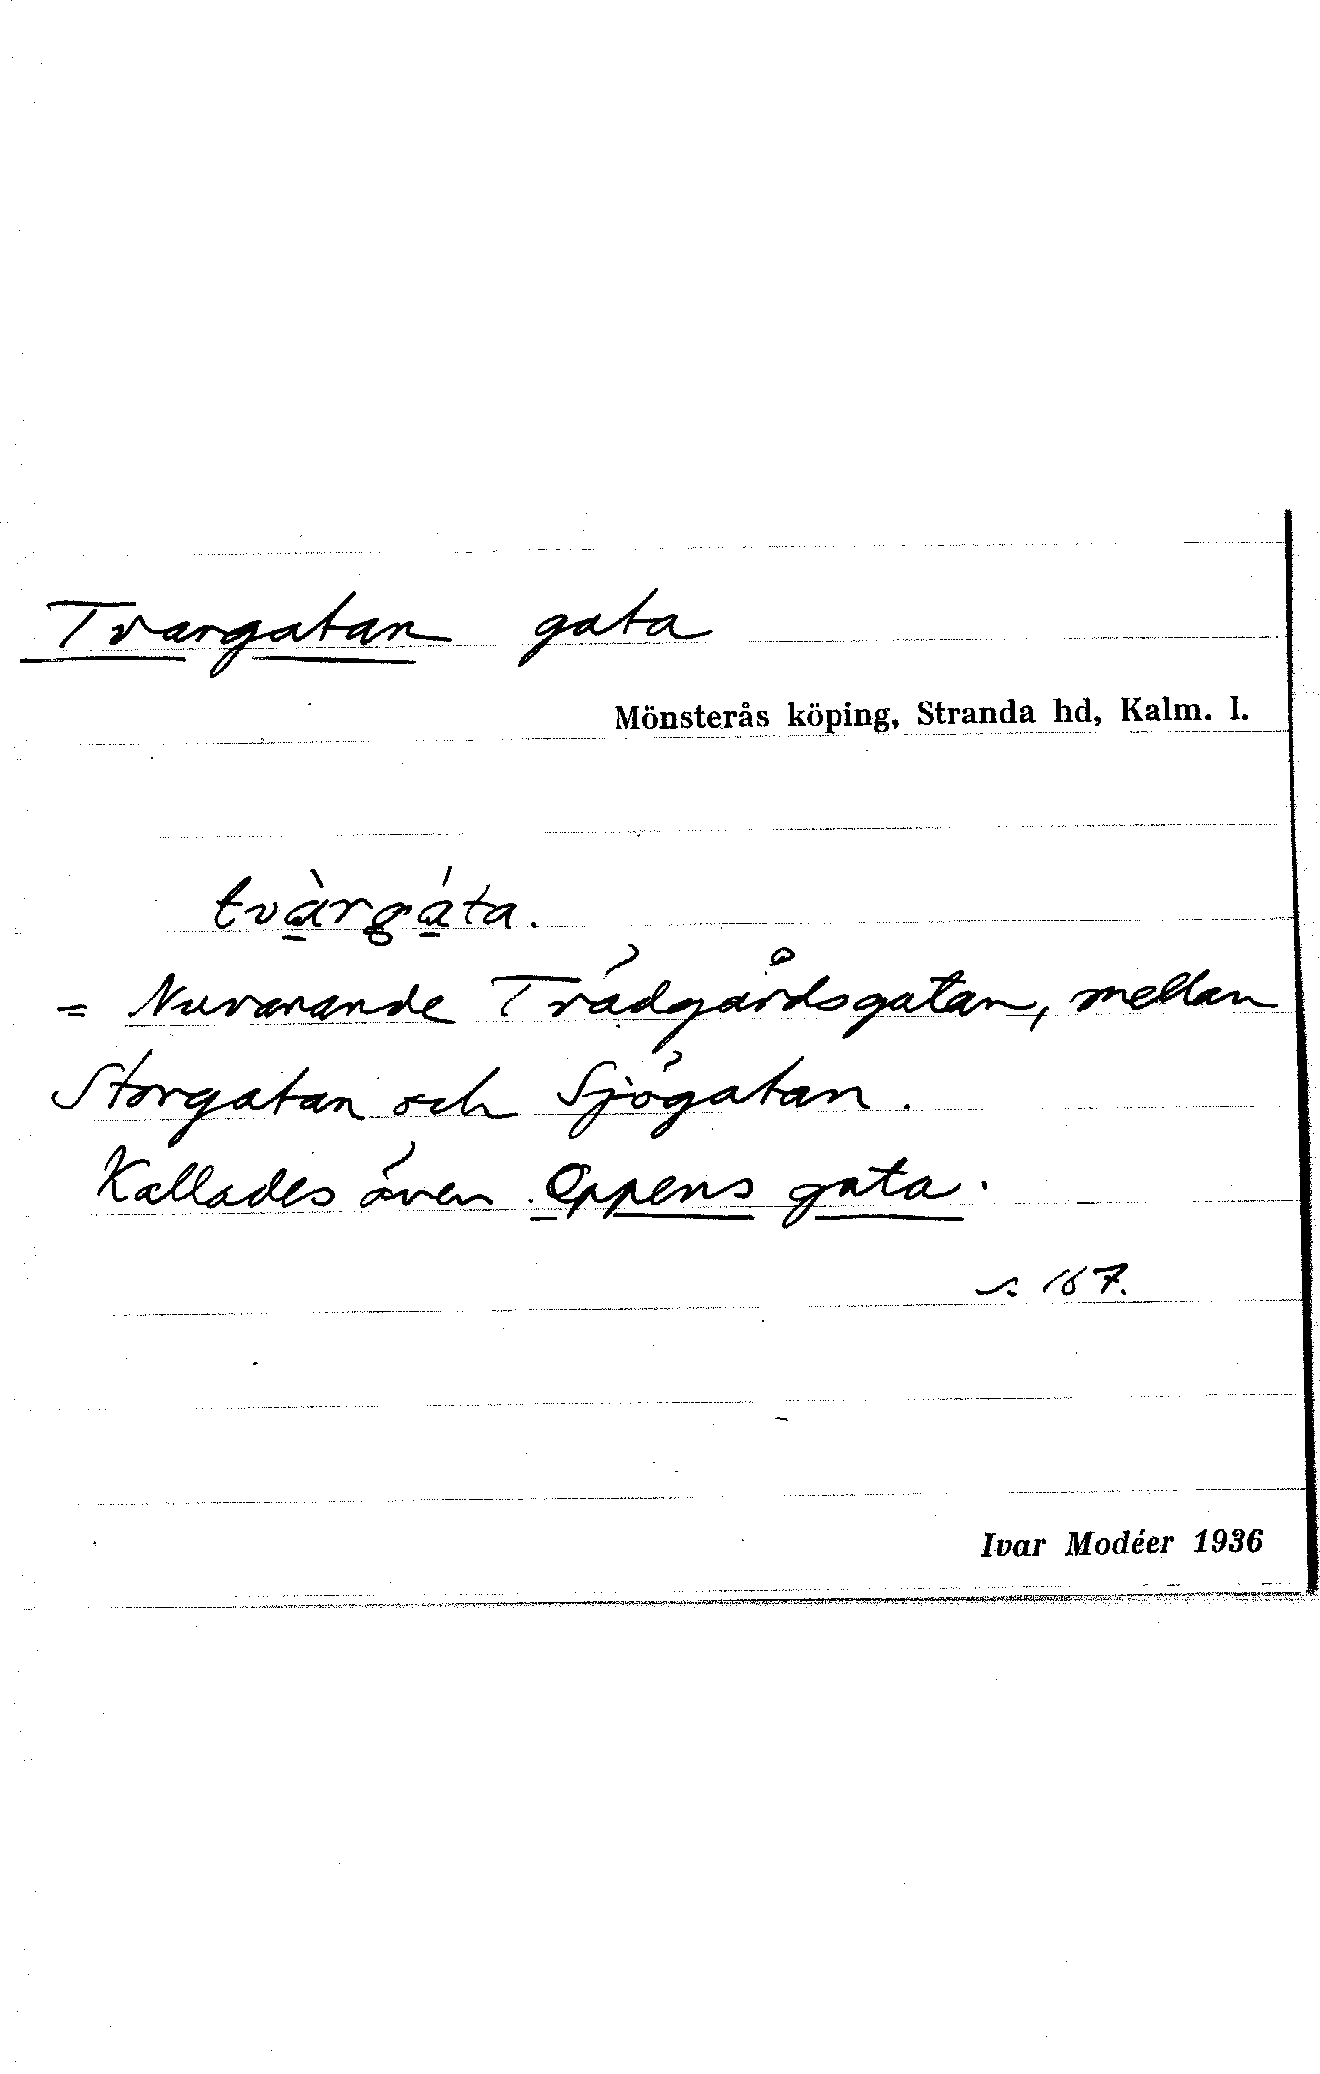 Tvargatan gata
Mönsterås köping, Stranda hd, Kalm. l.
tvàrgáta.
= Nuvarande Trädgårdsgatan, mellan
Storgatan och Sjögatan.
Kallades även Oppens gata.
s. 167.
Ivar Modéer 1936